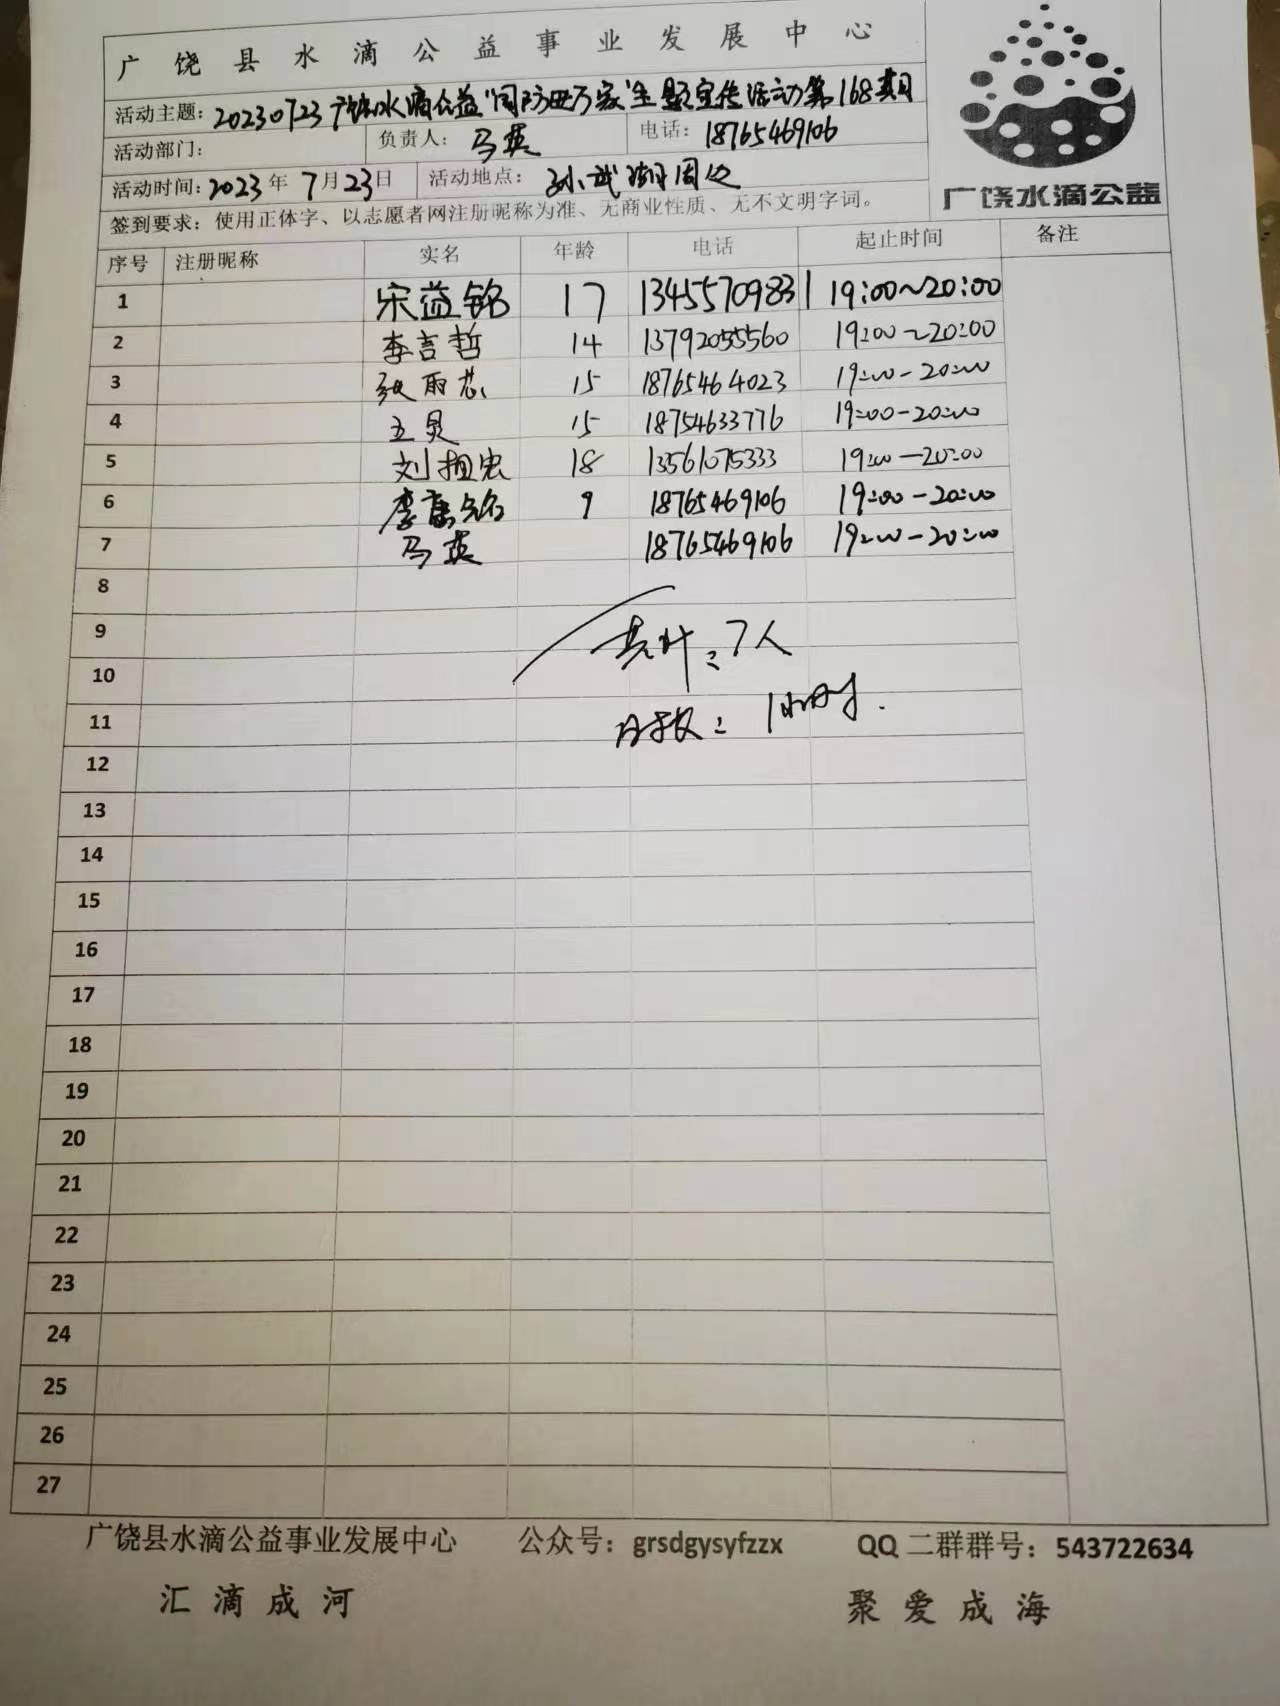 广饶县水滴公益事业发展中心
活动主题：20230723广饶水滴公益"国防进万家"主题宣传活动第168期
活动部门： 负责人：马英 电话：18765469106
活动时间：2023年7月23日 活动地点：孙武湖周边
签到要求：使用正体字、以志愿者网注册昵称为准、无商业性质、无不文明字词。
广饶水滴公益
序号 注册昵称 实名 年龄 电话 起止时间 备注
1 宋益铭 17 13455709831 19:00~20:00
2 李言哲 14 13792055560 19:00~20:00
3 张雨芯 15 18765464023 19:00-20:00
4 15 18754633776 19:00-20:00
5 刘担宏 18 13561075333 19:00-20:00
6 李 铭 9 18765469106 19:00-20:00
7 马英 18765469106 19:00-20:00
8
9 共计：7人
10
11 ：1小时.
12
13
14
15
16
17
18
19
20
21
22
23
24
25
26
27
广饶县水滴公益事业发展中心 公众号：grsdgysyfzzx QQ二群群号：543722634
汇滴成河 聚爱成海